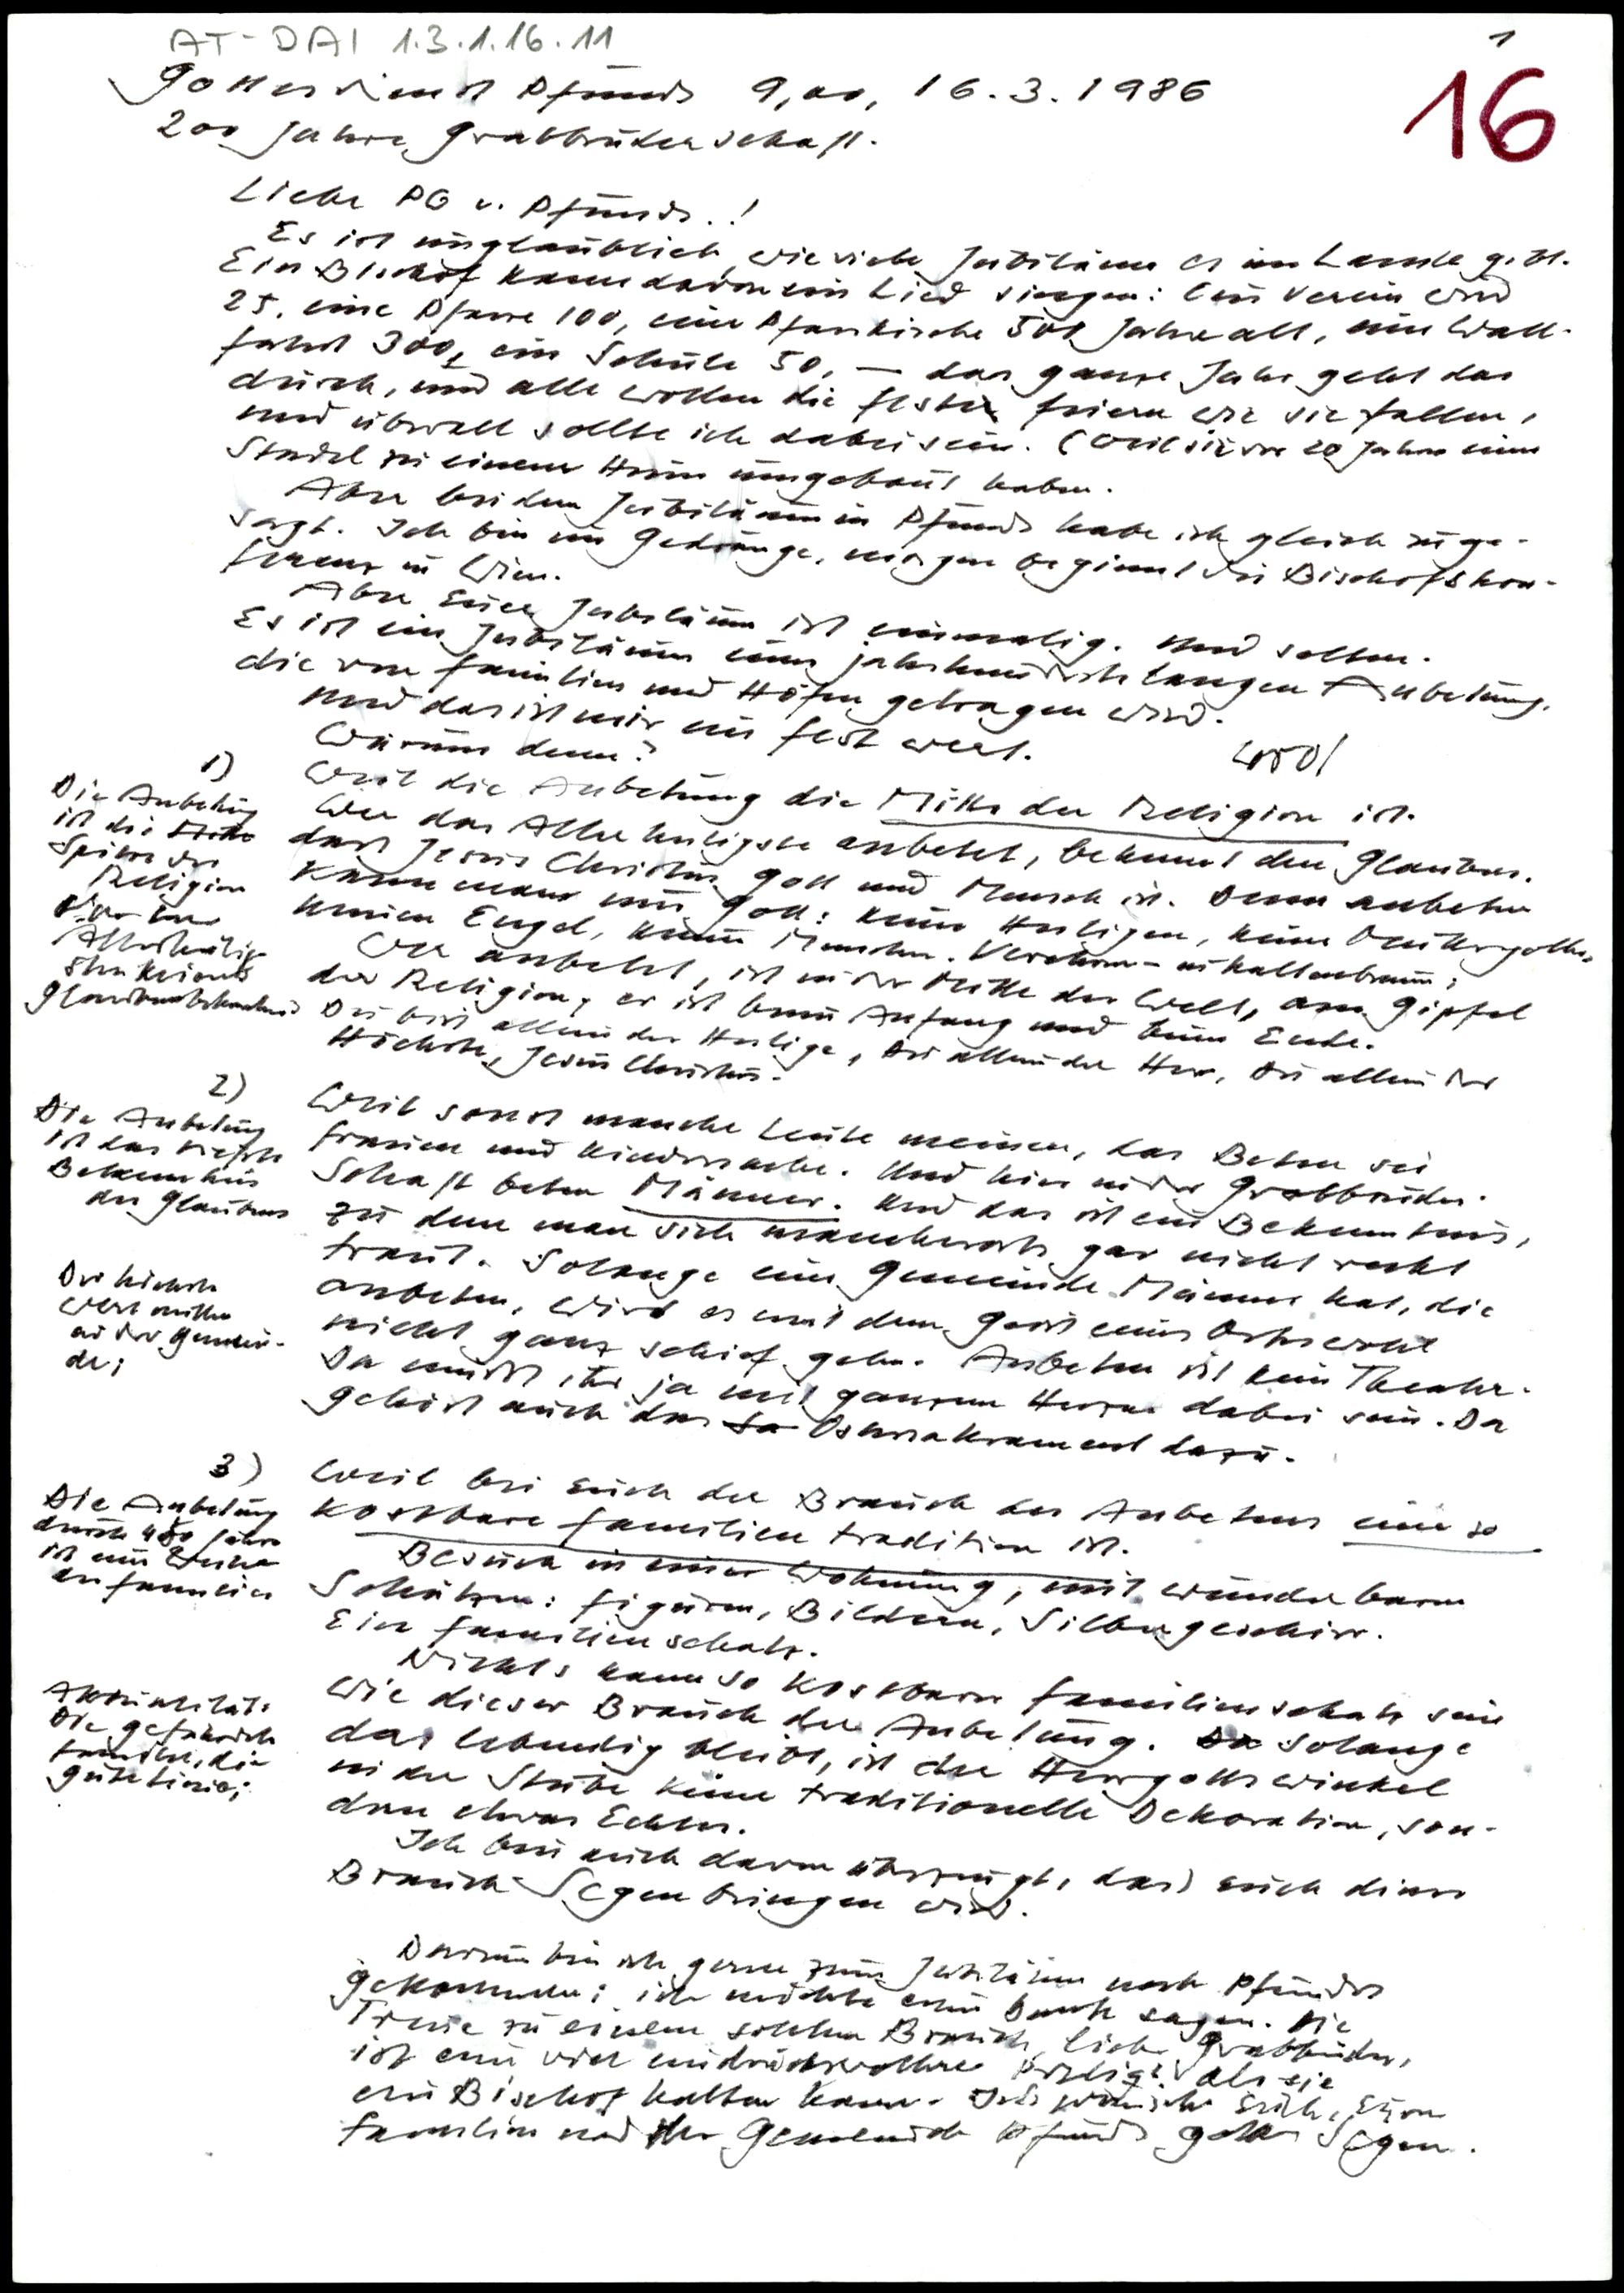 AT-DAI 1.3.1.16.11
1
16
Gottesdienst Pfunds 9,00, 16.3.1986
200 Jahre Grabbruderschaft.
Liebe PG v. Pfunds..!
Es ist unglaublich, wieviele Jubiläen es im Lande gibt.
Ein Bischof kann davon ein Lied singen: Ein Verein wird
25, eine Pfarre 100, eine Pfarrkirche 500 Jahre alt, eine Wall-
fahrt 300, ein Schule 50, – das ganze Jahr geht das
durch, und alle wollen die Feste feiern wie sie fallen,
und überall sollte ich dabei sein. (Weil sie vor 20 Jahren einen
Stadel zu einem Heim umgebaut haben.
Aber bei dem Jubiläum in Pfunds habe ich gleich zuge-
sagt. Ich bin im Gedränge, morgen beginnt die Bischofskon-
ferenz in Wien.
Aber Euer Jubiläum ist einmalig. Und selten.
Es ist ein Jubiläum einer jahrhundertelangen Anbetung,
die von Familien und Höfen getragen wird.
Und das ist mir ein Fest wert.
Warum denn?
1)
Die Anbetung
ist die Mitte
Spitze der
Religion
Allerheilig-
Weil die Anbetung die Mitte der Religion ist.
Wer das Allerheiligste anbetet, bekennt den Glauben.
dass Jesus Christus Gott und Mensch ist. Denn anbeten
kann man nur Gott: keine Heiligen, keine Muttergottes,
keinen Engel, keinen Menschen. Verehren –
Wer anbetet, ist in der Mitte der Welt, am Gipfel
der Religion, er ist beim Anfang und beim Ende.
Du bist allein der Heilige, Du allein der Herr, Du allein der
Höchste, Jesus Christus.
2)
Die Anbetung
ist das tiefste
Bekenntnis
des Glaubens
Der höchste
Wert mitten
in der Gemein-
de;
Weil sonst manche Leute meinen, das Beten sei
Frauen und Kindersache. Und hier in der Grabbruder-
schaft beten Männer. Und das ist ein Bekenntnis,
zu dem man sich mancherorts gar nicht recht
traut. Solange eine Gemeinde Männer hat, die
anbeten, wird es mit dem Geist eines Ortes wohl
nicht ganz schief gehn. Anbeten ist kein Theater.
Da müsst ihr ja mit ganzem Herzen dabei sein. Da
gehört auch das Ostersakrament dazu.
3)
Die Anbetung
durch 400 Jahre
ist ein
der Familien
Weil bei Euch der Brauch des Anbetens eine so
kostbare Familientradition ist.
Besuch in einer Wohnung, mit wunderbaren
Schätzen: Figuren, Bildern, Silbergeschirr.
Ein Familienschatz.
Aktualität:
Die gefährdete
Familie, die
Nichts kann so kostbarer Familienschatz sein
wie dieser Brauch der Anbetung. Solange
das lebendig bleibt, ist der Herrgottswinkel
in der Stube keine traditionelle Dekoration, son-
dern etwas Echtes.
Ich bin auch davon überzeugt, dass euch dieser
Brauch Segen bringen wird.
Darum bin ich gerne zum Jubiläum nach Pfunds
gekommen; ich möchte euch Dank sagen. Die
Treue zu einem solchen Brauch, liebe Grabbrüder,
ist eine viel eindrucksvollere Predigt als sie
ein Bischof halten kann. Ich wünsche Euch, Euren
Familien und der Gemeinde Pfunds Gottes Segen.